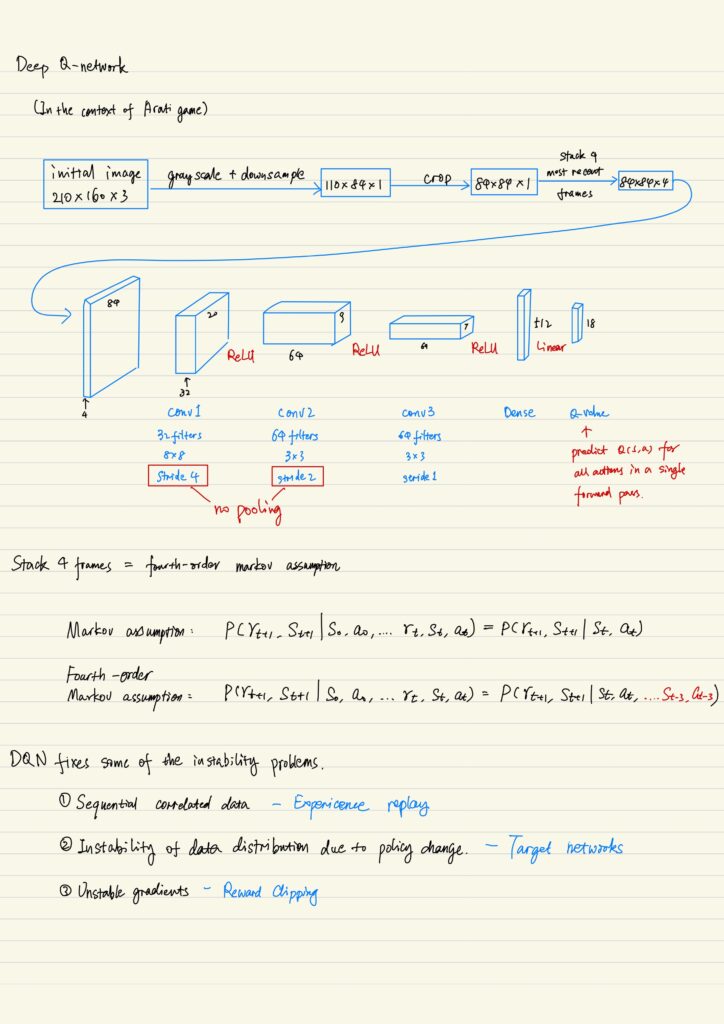 Deep Q-network
(In the context of Arati game)
initial image
210 × 160 × 3
grayscale + downsample
110 × 84 × 1
crop
84 × 84 × 1
stack 4
most recent
frames
84×84×4
84
4
20
32
ReLU
9
64
ReLU
7
64
ReLU
512
Linear
18
Conv 1
32 filters
8×8
Stride 4
Conv 2
64 filters
3×3
stride 2
Conv 3
64 filters
3×3
stride 1
Dense
Q-value
predict Q(s,a) for
all actions in a single
forward pass.
no pooling
Stack 4 frames = fourth-order markov assumption
Markov assumption: P(r_{t+1}, S_{t+1} | S_0, a_0, ... r_t, S_t, a_t) = P(r_{t+1}, S_{t+1} | S_t, a_t)
Fourth-order
Markov assumption: P(r_{t+1}, S_{t+1} | S_0, a_0, ... r_t, S_t, a_t) = P(r_{t+1}, S_{t+1} | S_t, a_t, .... S_{t-3}, a_{t-3})
DQN fixes some of the instability problems.
① Sequential correlated data - Expericence replay
② Instability of data distribution due to policy change. - Target networks
③ Unstable gradients - Reward Clipping